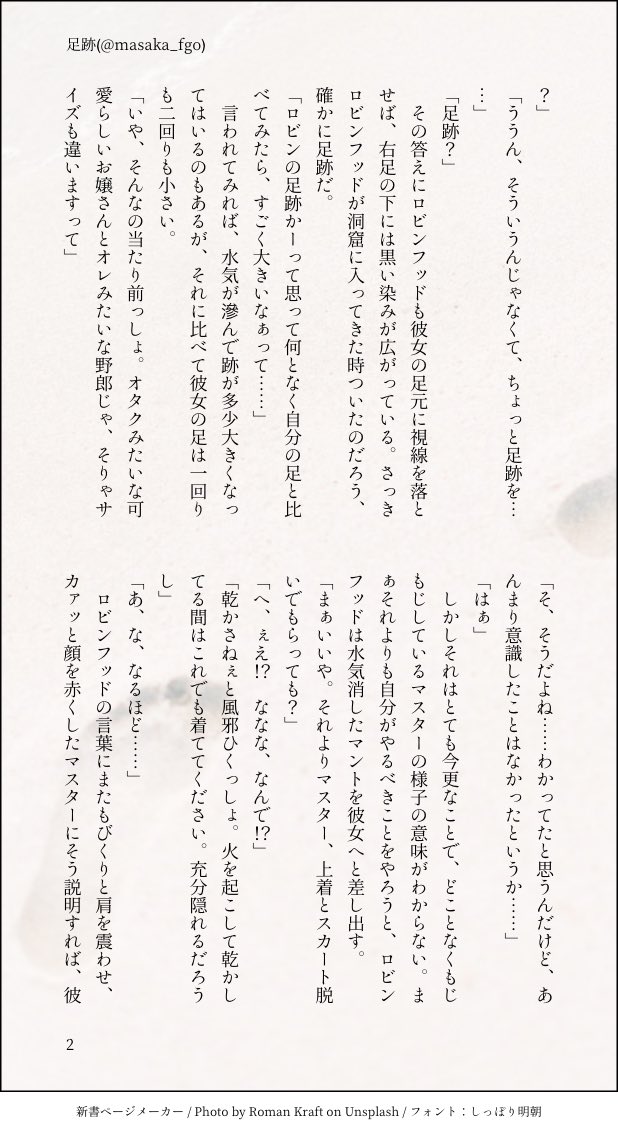 足跡(@masaka_fgo)
？」
「ううん、そういうんじゃなくて、ちょっと足跡を…
…」
「足跡？」
　その答えにロビンフッドも彼女の足元に視線を落と
せば、右足の下には黒い染みが広がっている。さっき
ロビンフッドが洞窟に入ってきた時ついたのだろう、
確かに足跡だ。
「ロビンの足跡かーって思って何となく自分の足と比
べてみたら、すごく大きいなぁって……」
　言われてみれば、水気が滲んで跡が多少大きくなっ
てはいるのもあるが、それに比べて彼女の足は一回り
も二回りも小さい。
「いや、そんなの当たり前っしょ。オタクみたいな可
愛らしいお嬢さんとオレみたいな野郎じゃ、そりゃサ
イズも違いますって」
「そ、そうだよね……わかってたと思うんだけど、あ
んまり意識したことはなかったというか……」
「はぁ」
　しかしそれはとても今更なことで、どことなくもじ
もじしているマスターの様子の意味がわからない。ま
ぁそれよりも自分がやるべきことをやろうと、ロビン
フッドは水気消したマントを彼女へと差し出す。
「まぁいいや。それよりマスター、上着とスカート脱
いでもらっても？」
「へ、ぇえ!?　ななな、なんで!?」
「乾かさねぇと風邪ひくっしょ。火を起こして乾かし
てる間はこれでも着ててください。充分隠れるだろう
し」
「あ、な、なるほど……」
　ロビンフッドの言葉にまたもびくりと肩を震わせ、
カァッと顔を赤くしたマスターにそう説明すれば、彼
2
新書ページメーカー / Photo by Roman Kraft on Unsplash / フォント：しっぽり明朝